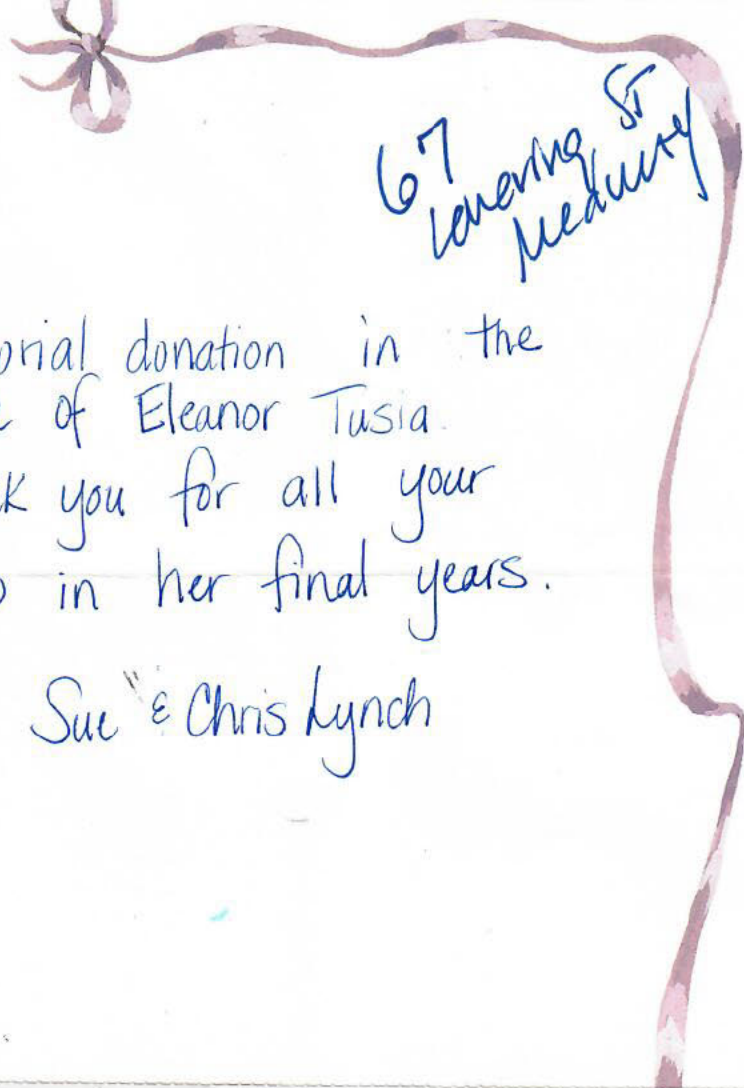 67
ST
orial donation in the
of Eleanor Tusia.
k you for all your
in her final years.
Sue & Chris Lynch